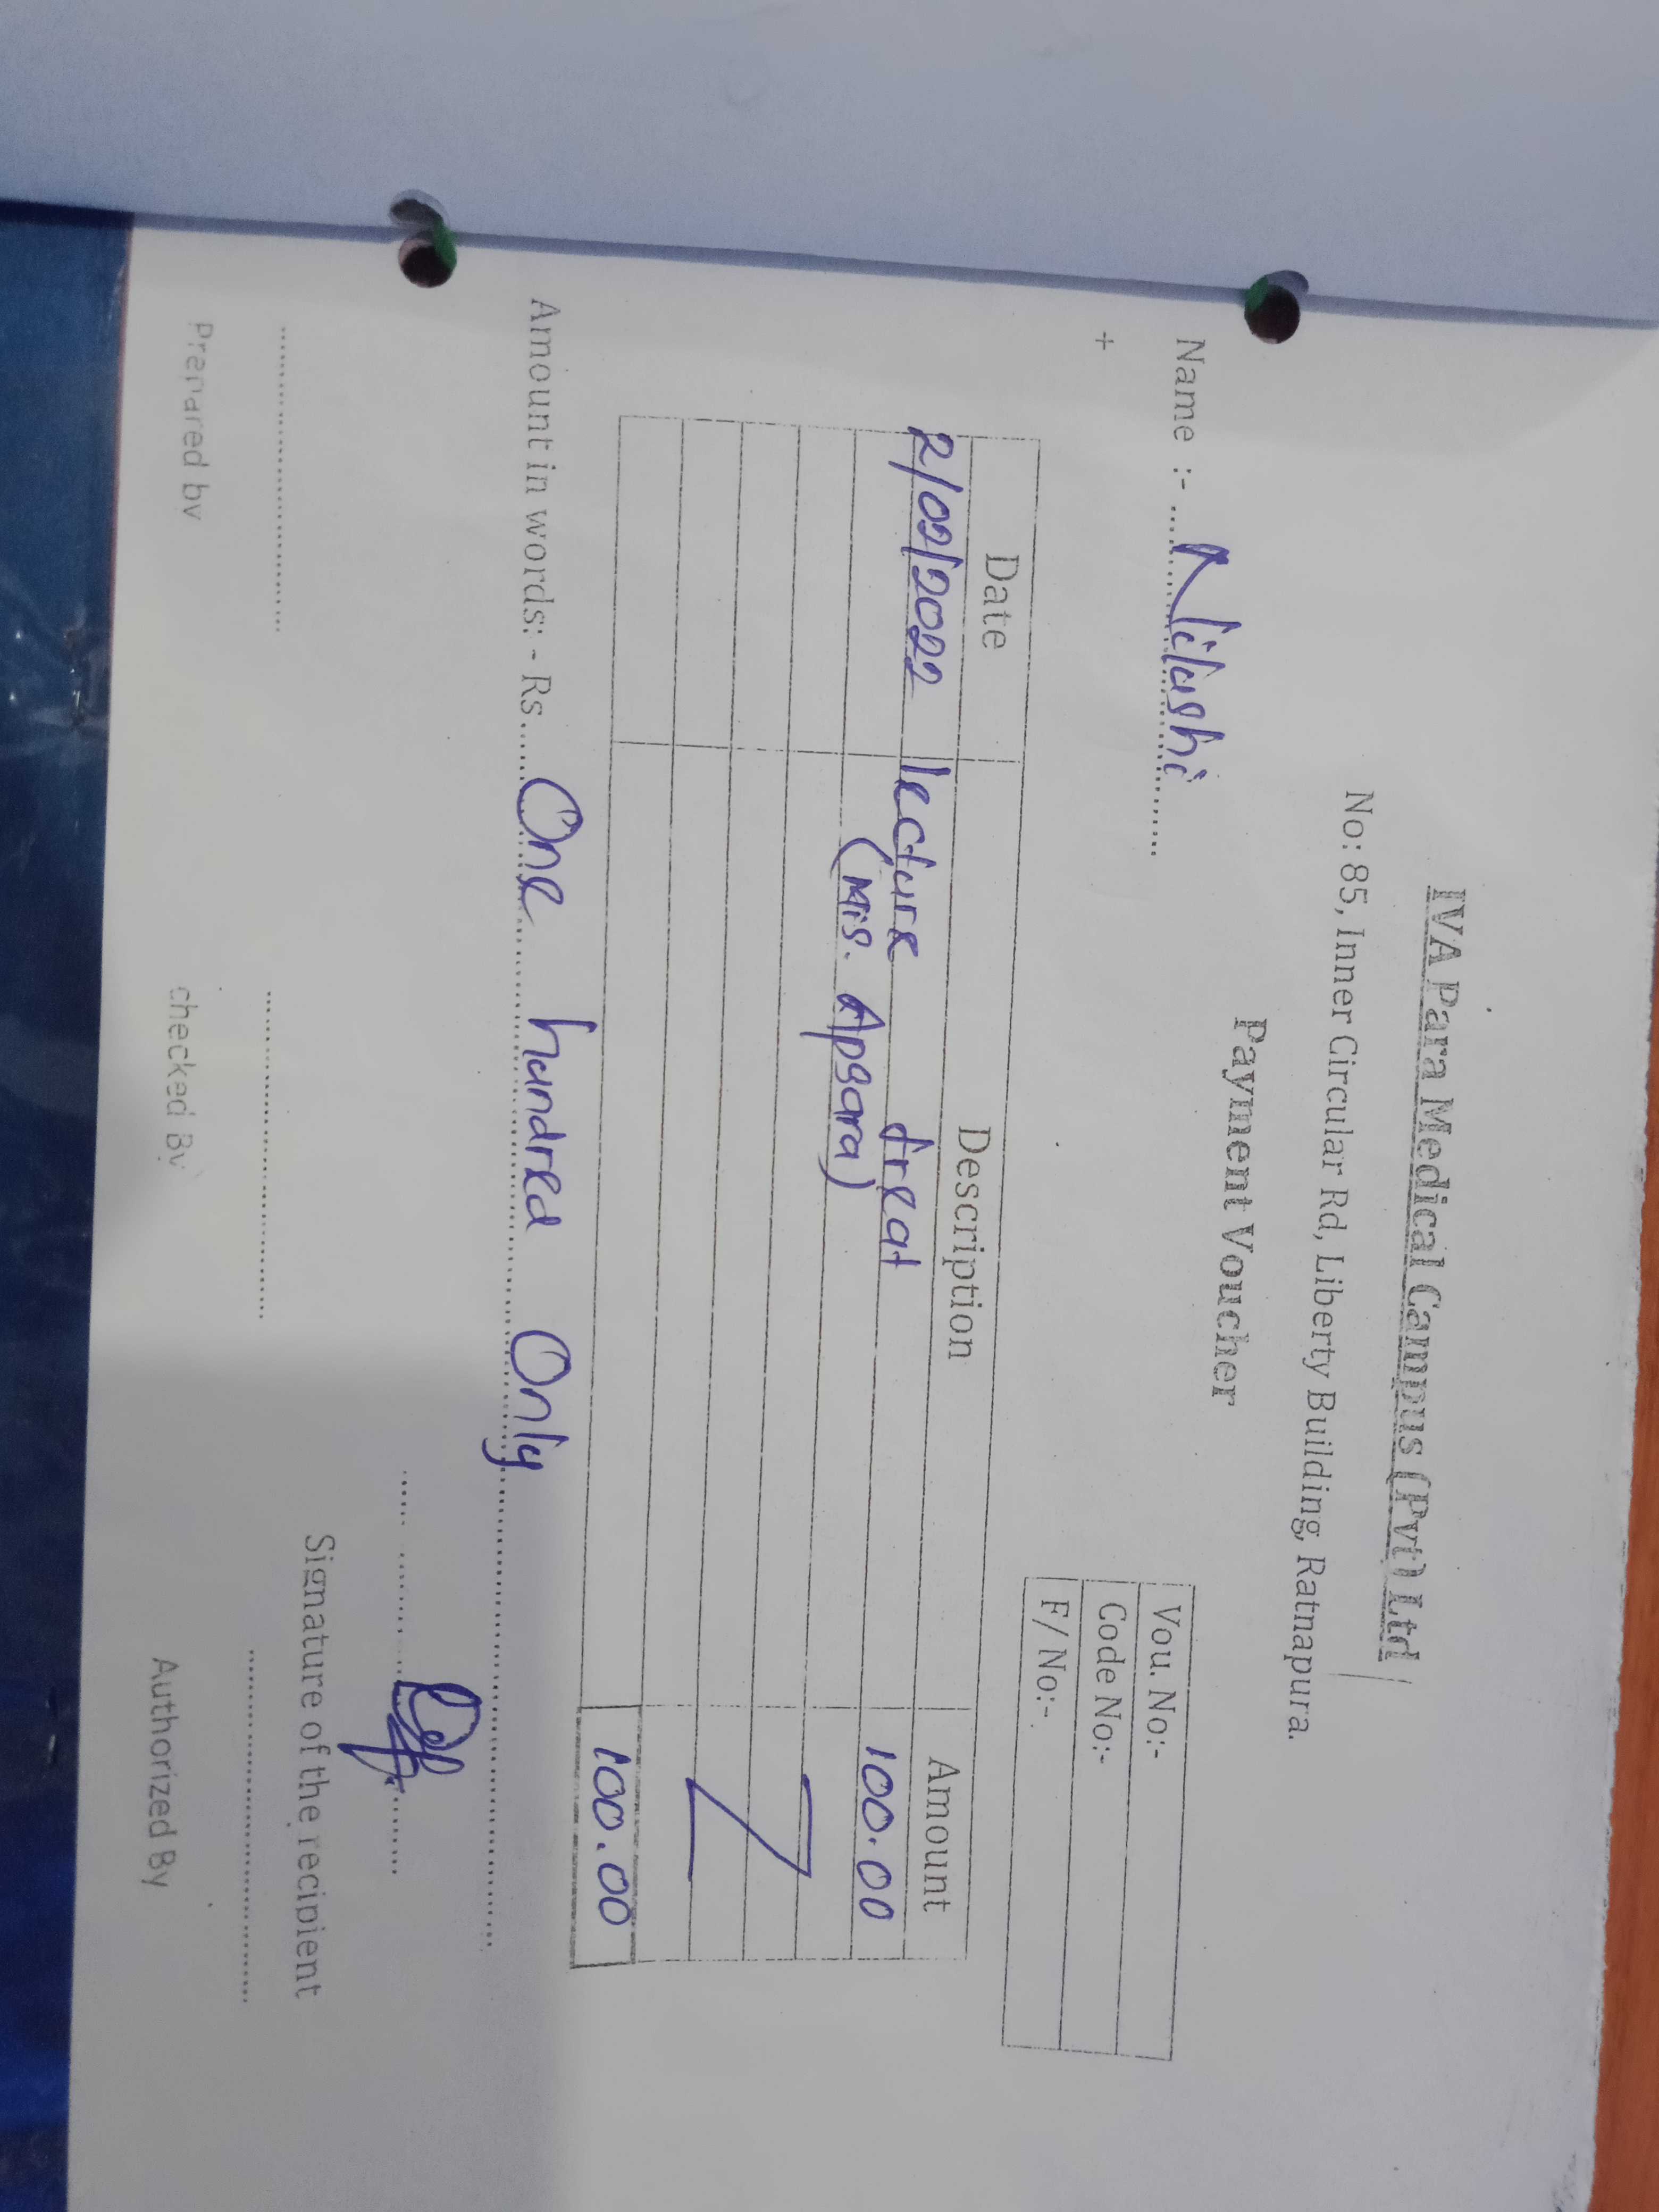 IVA Para Medical Campus (Pvt) Ltd
No: 85, Inner Circular Rd, Liberty Building, Ratnapura.
Payment Voucher
Vou. No:-
Code No:-
F/ No:-
Name :- Nilushi
+
Date Description Amount
2/02/2022 lecture treat 100.00
(Mis. Apsara)
100.00
Amount in words: - Rs. One hundred Only
Signature of the recipient
Prepared by checked By Authorized By